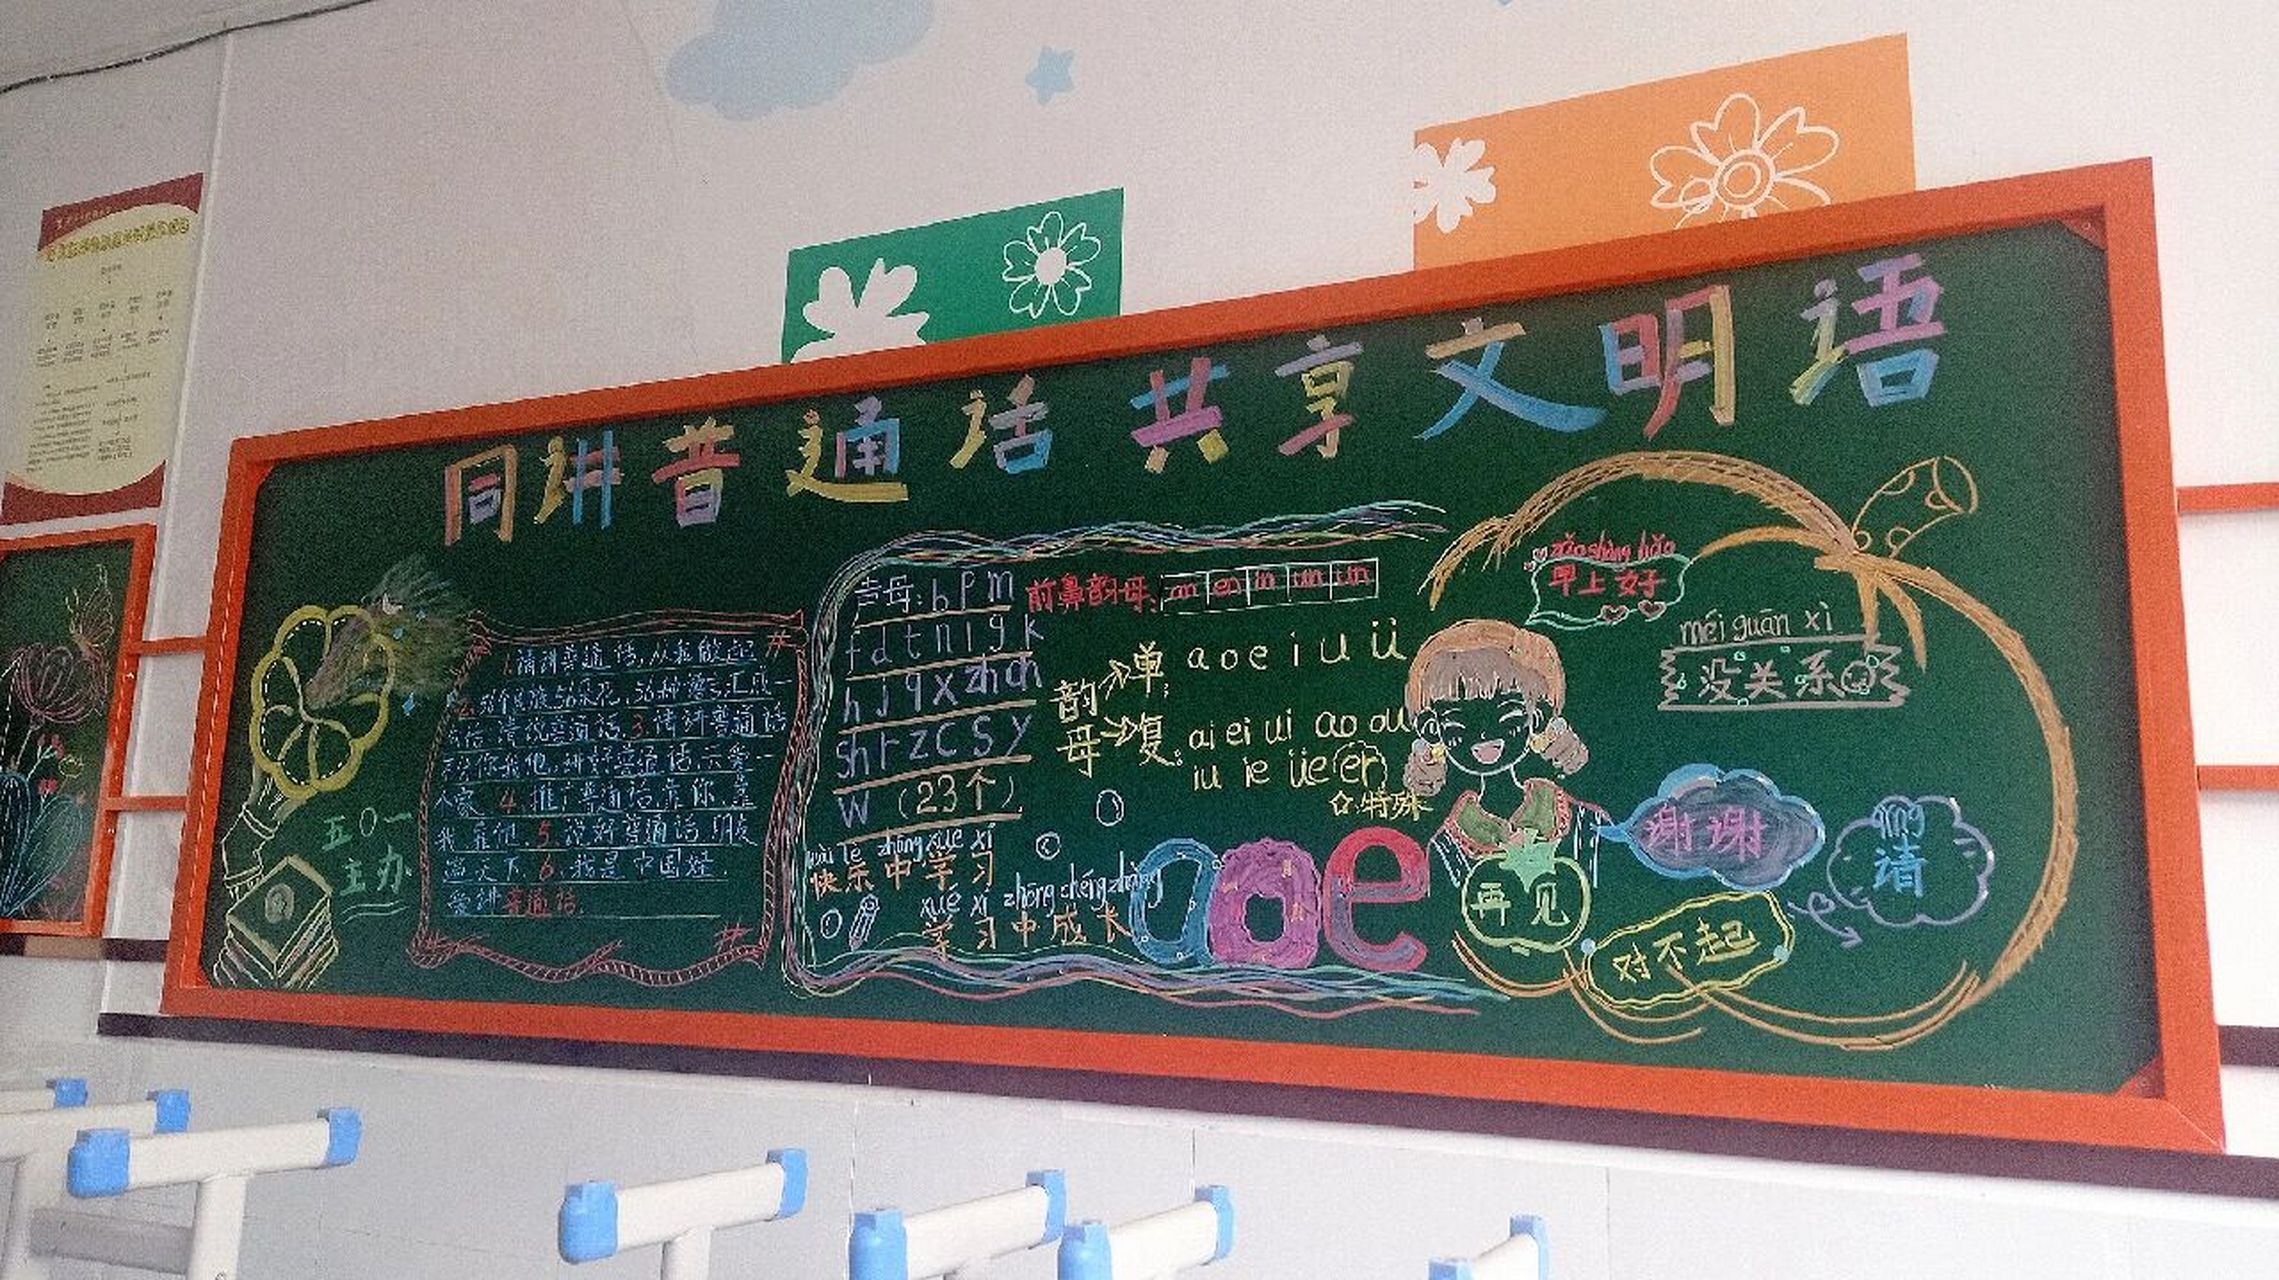 同讲普通话 共享文明语
1.请讲普通话,从我做起
2.56个民族56朵花,56种语言汇成一
句话:请说普通话.3.请讲普通话
你我他,讲好普通话,云爱一
家 4.推广普通话靠你 靠
我 靠他.5.说好普通话 朋友
遍天下.6.我是中国娃,
爱讲普通话.
五〇一
主办
声母:b p m
f d t n l g k
h j q x zh ch
sh r z c s y
w (23个)
前鼻韵母: an en in un ün
韵母
单: a o e i u ü
复: ai ei ui ao ou
iu ie üe er
☆:特殊
kuài lè zhōng xué xí
快乐中学习
xué xí zhōng chéng zhǎng
学习中成长
a o e
zǎo shàng hǎo
早上好
méi guān xì
没关系
谢谢
qǐng
请
再见
对不起